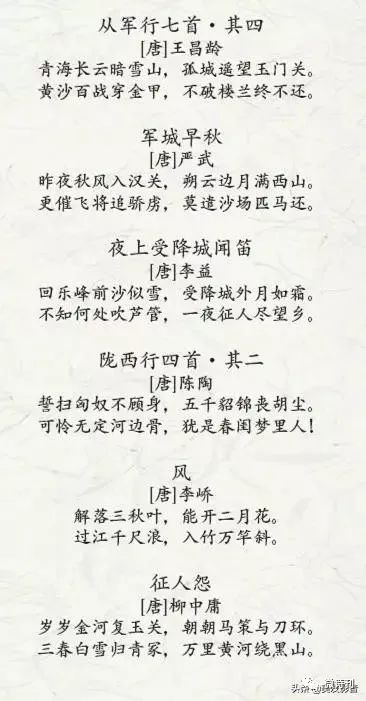 从军行七首·其四
[唐]王昌龄
青海长云暗雪山，孤城遥望玉门关。
黄沙百战穿金甲，不破楼兰终不还。
军城早秋
[唐]严武
昨夜秋风入汉关，朔云边月满西山。
更催飞将追骄虏，莫遣沙场匹马还。
夜上受降城闻笛
[唐]李益
回乐峰前沙似雪，受降城外月如霜。
不知何处吹芦管，一夜征人尽望乡。
陇西行四首·其二
[唐]陈陶
誓扫匈奴不顾身，五千貂锦丧胡尘。
可怜无定河边骨，犹是春闺梦里人！
风
[唐]李峤
解落三秋叶，能开二月花。
过江千尺浪，入竹万竿斜。
征人怨
[唐]柳中庸
岁岁金河复玉关，朝朝马策与刀环。
三春白雪归青冢，万里黄河绕黑山。
头条